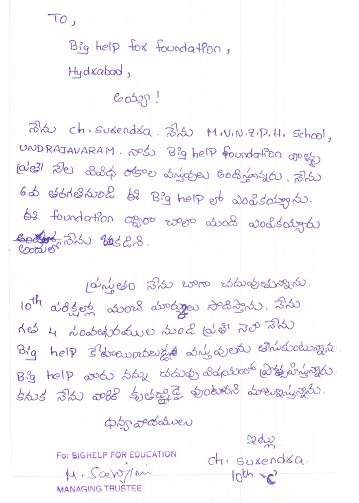 To,
Big help for foundation,
Hydrabad,
అయ్యా!
నేను ch. surendra. నేను M.V.N.Z.P.H. School,
UNDRAJAVARAM. నాకు Big help foundation వాళ్ళు
ప్రతి నెల వివిధ రకాల వస్తువులు అందిస్తున్నారు. నేను
6వ తరగతినుండి ఈ Big help లో ఎంపికయ్యాను.
ఈ foundation ద్వారా చాలా మంది ఎంపికయ్యారు
అందులో నేను ఒకడిని.
ప్రస్తుతం నేను బాగా చదువుతున్నాను.
10th పరీక్షల్లో మంచి మార్కులు సాధిస్తాను. నేను
గత 4 సంవత్సరముల నుండి ప్రతి నెలా నేను
Big help వస్తువులను తీసుకుంటున్నాను.
Big help వారు నన్ను చదువు విషయంలో ప్రోత్సహిస్తున్నారు.
కనుక నేను వారికి కృతజ్ఞుడై వుంటానని
ధన్యవాదములు
ఇట్లు
For BIGHELP FOR EDUCATION
ch. surendra
10th
MANAGING TRUSTEE